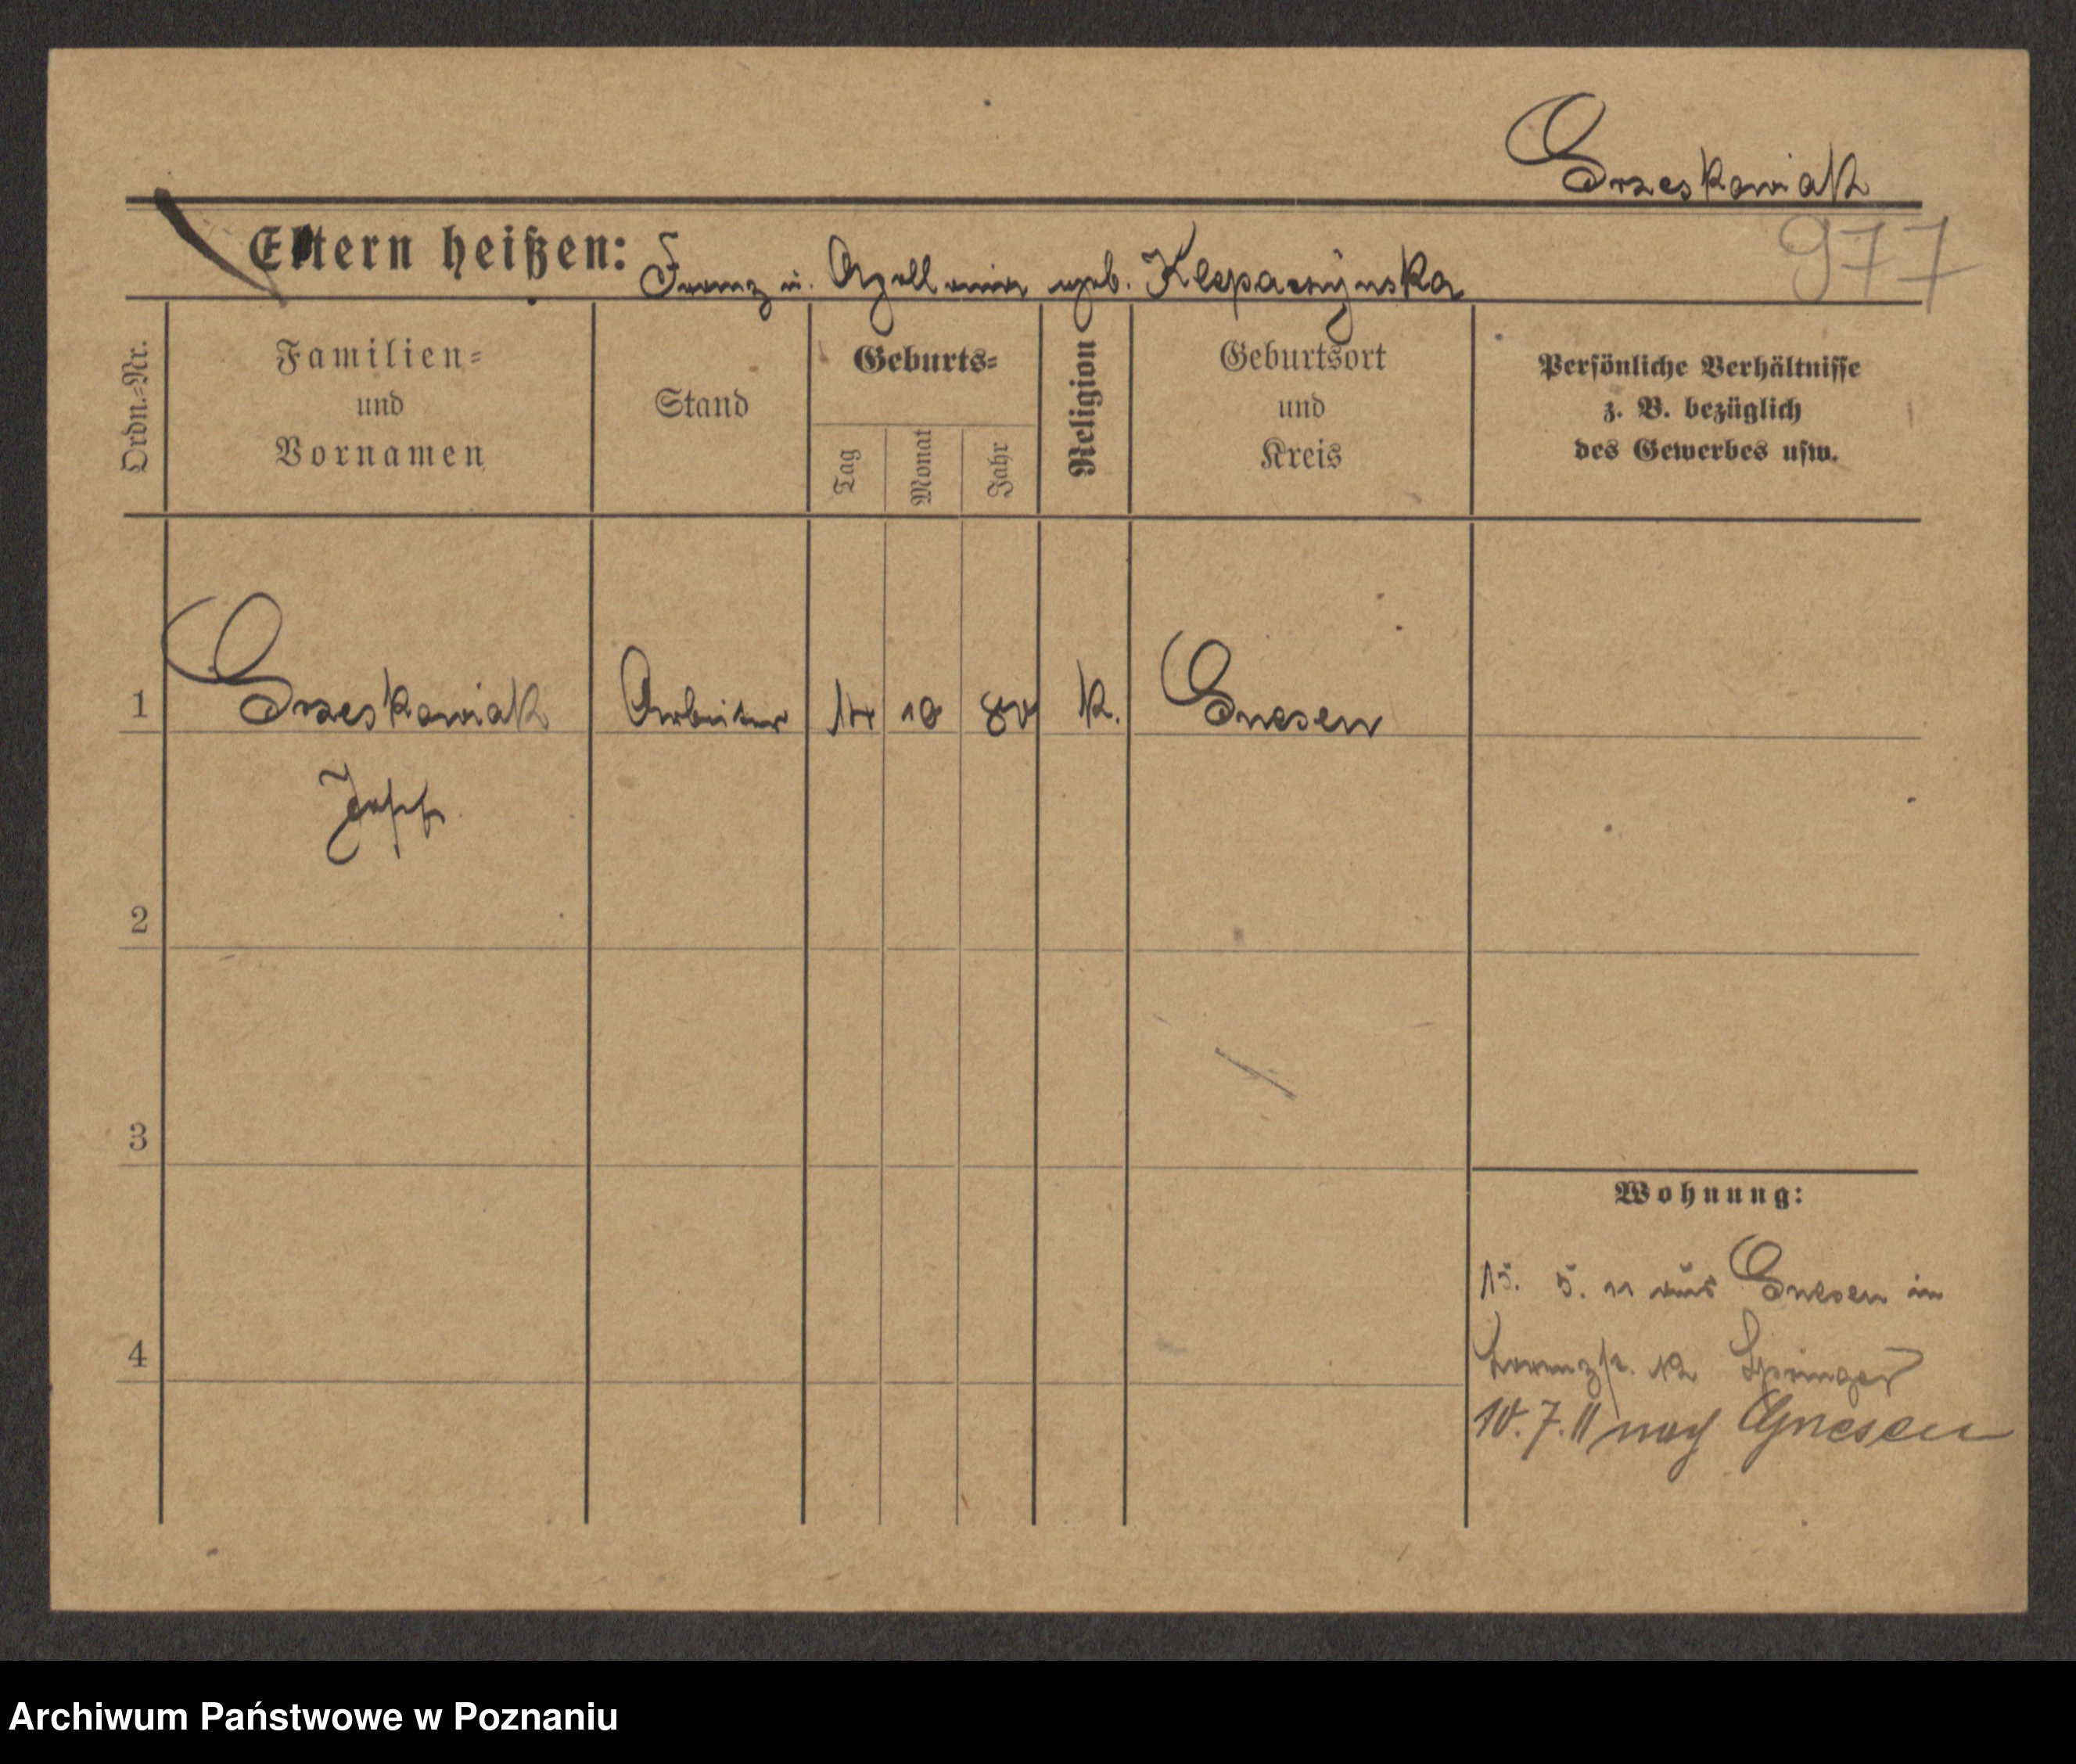 Grzeskowiak
Eltern heißen: Franz u. Apollonia geb. Kasparzynska
977
Ordn.-Nr.
Familien-
und
Vornamen
Stand
Geburts-
Tag
Monat
Jahr
Religion
Geburtsort
und
Kreis
Persönliche Verhältnisse
z. B. bezüglich
des Gewerbes usw.
1 Grzeskowiak Arbeiter 14 10 80 k. Gnesen
Josef
2
3
Wohnung:
15. 5. 11 aus Gnesen in
4
12
10. 7. 11 nach Gnesen
Archiwum Państwowe w Poznaniu